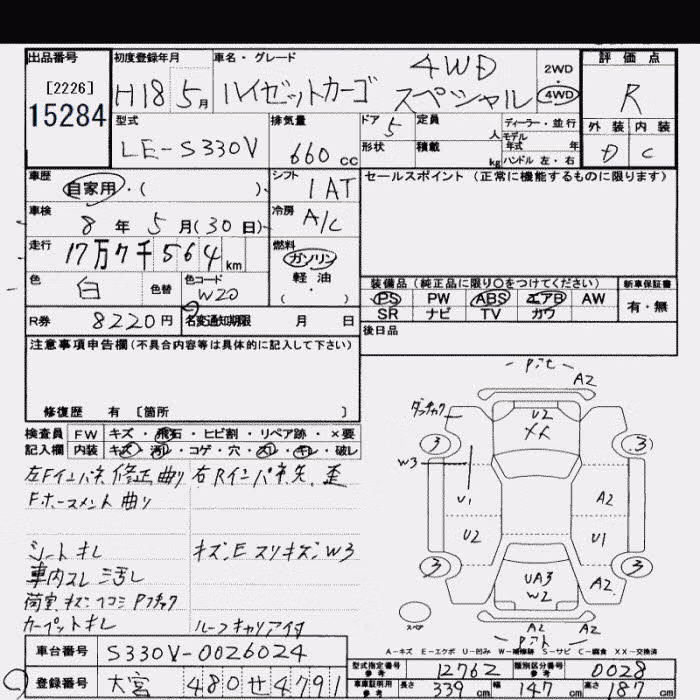 出品番号 初度登録年月 車名・グレード 評価点
[2226]
15284
H18 5月 ハイゼットカーゴ 4WD スペシャル
2WD
4WD
R
型式 排気量 ドア 定員 ディーラー・並行 外装 内装
LE-S330V 660cc 5 人 モデル年式 年 D C
形状 積載 kg ハンドル 左・右
車歴 シフト セールスポイント(正常に機能するものに限ります)
自家用・( )・ IAT
車検 冷房
8年5月(30日) A/C
走行 燃料
17万7千564km ガソリン
軽油
・( )
色 色替 色コード 装備品(純正品に限り○をつけてください) 新車保証書
白 W20 PS PW ABS エアB AW 有・無
SR ナビ TV カワ
R券 8220円 名変通知期限 月 日 後日品
注意事項申告欄(不具合内容等は具体的に記入して下さい)
修復歴 有 [箇所 ]
検査員 FW キズ・飛石・ヒビ割・リペア跡・×要
記入欄 内装 キズ・汚レ・コゲ・穴・スレ・キレ・破レ
左Fインパネ修正曲り 右Rインパネ先、歪
Fホースメント曲り
シートキレ キズ、Eスリキズ、W3
車内スレ ミ汚レ
荷室キズ、ヘコミ
カーペットキレ ルーフキャリア付
Pitt
A2
U2
XX
3 3
W3
U1 A2
U2 U1
3 3
UA3
W2
A2
A2 A2
スペア
A-キズ E-エクボ U-凹み W-補修跡 S-サビ C-腐食 XX-交換済
車台番号 S330V-0026024
登録番号 大宮 480せ4791
型式指定番号 参考 12762 類別区分番号 参考 0028
車庫証明用 参考 長さ 339cm 幅 147cm 高さ 187cm